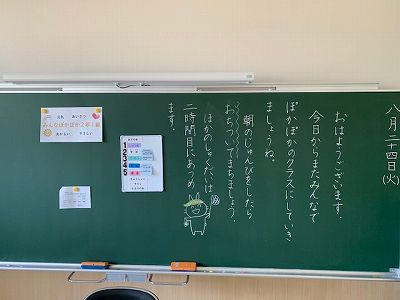 八月二十四日(火)
おはようございます。
今日からまたみんなで
ぽかぽかのクラスにしていき
ましょうね。
朝のじゅんびをしたら、
おちついてまちましょう。
ほかのしゅくだいは
二時間目にあつめ
ます。
元気 あいさつ
みんなぽかぽか2年1組
あかるい やさしい
1
2
3
4
5